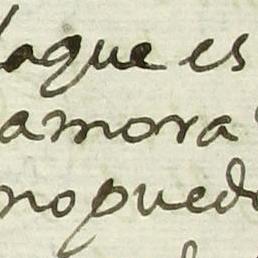 laque es
amora
no puedo